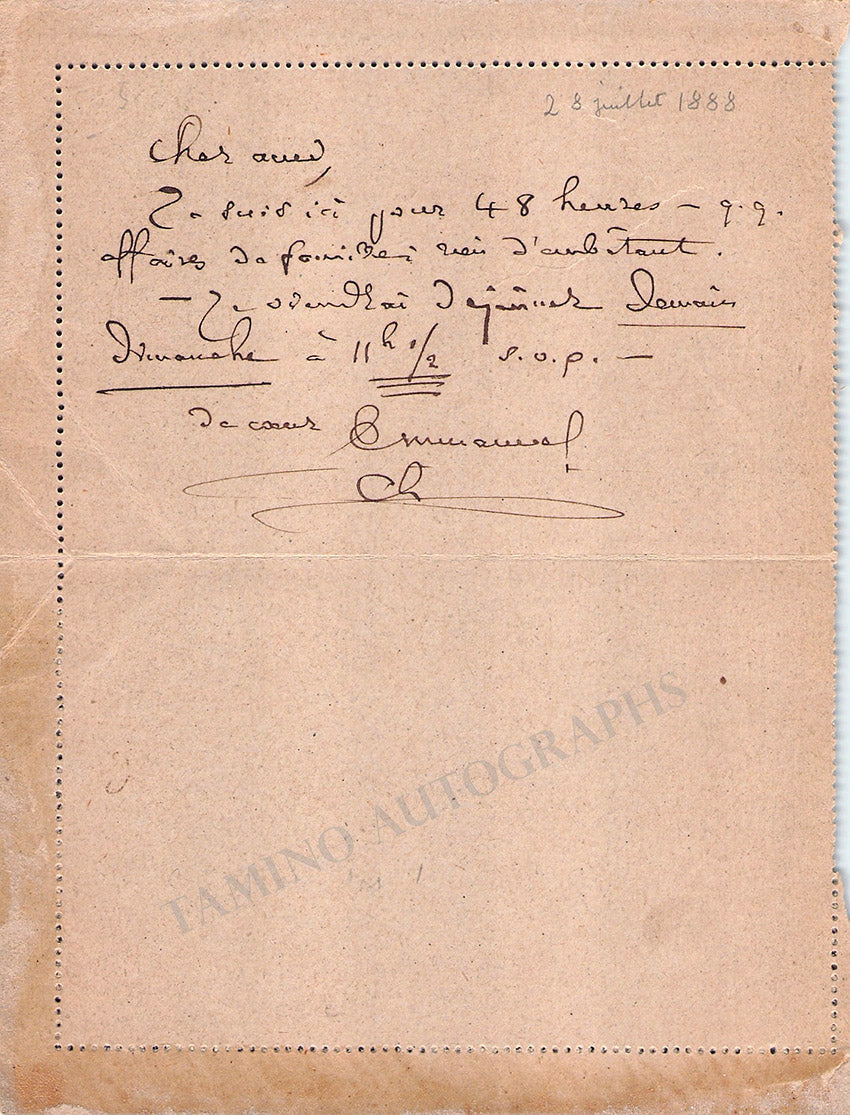 28 juillet 1888
Cher ami,
Je suis ici pour 48 heures – q.q.
affaires de famille; rien d'embêtant.
– Je viendrai déjeuner demain
Dimanche à 11h 1/2 s.v.p. –
de cœur Emmanuel
Ch
TAMINO AUTOGRAPHS